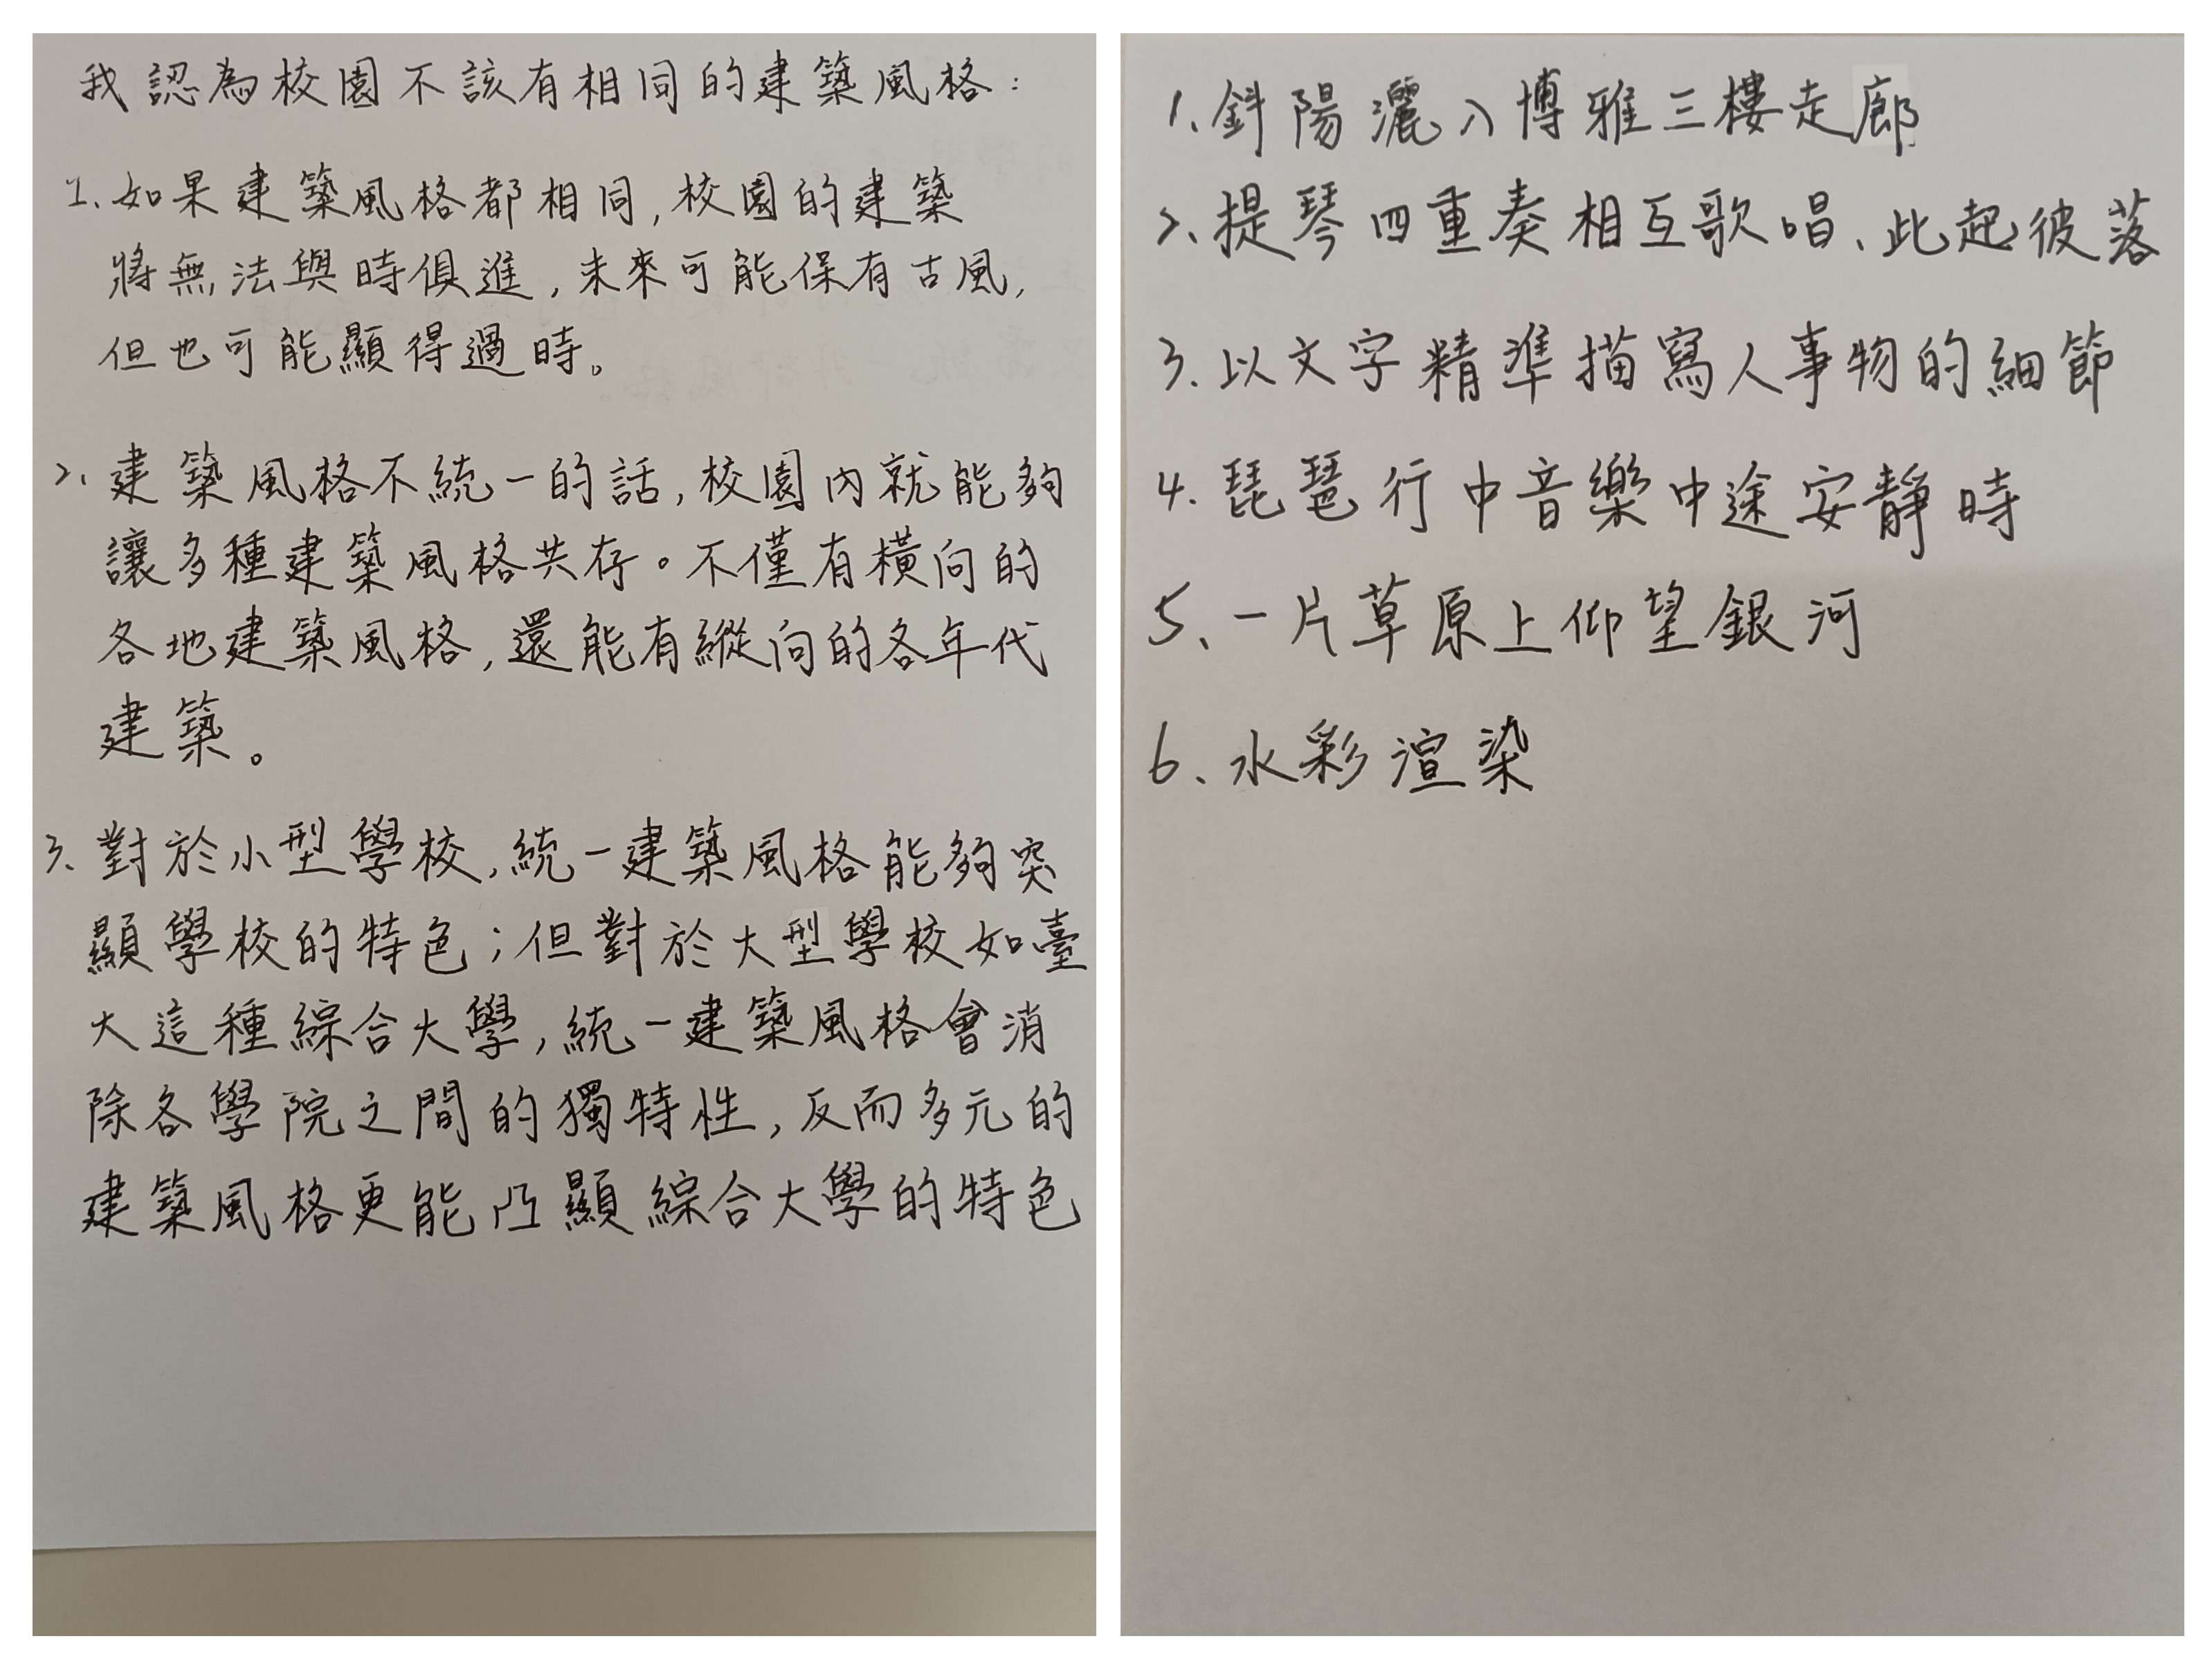 我認為校園不該有相同的建築風格：
1、如果建築風格都相同,校園的建築
將無法與時俱進,未來可能保有古風,
但也可能顯得過時。
2、建築風格不統一的話,校園內就能夠
讓多種建築風格共存。不僅有橫向的
各地建築風格,還能有縱向的各年代
建築。
3、對於小型學校,統一建築風格能夠突
顯學校的特色；但對於大型學校如臺
大這種綜合大學,統一建築風格會消
除各學院之間的獨特性,反而多元的
建築風格更能凸顯綜合大學的特色
1、斜陽灑入博雅三樓走廊
2、提琴四重奏相互歌唱、此起彼落
3、以文字精準描寫人事物的細節
4、琵琶行中音樂中途安靜時
5、一片草原上仰望銀河
6、水彩渲染